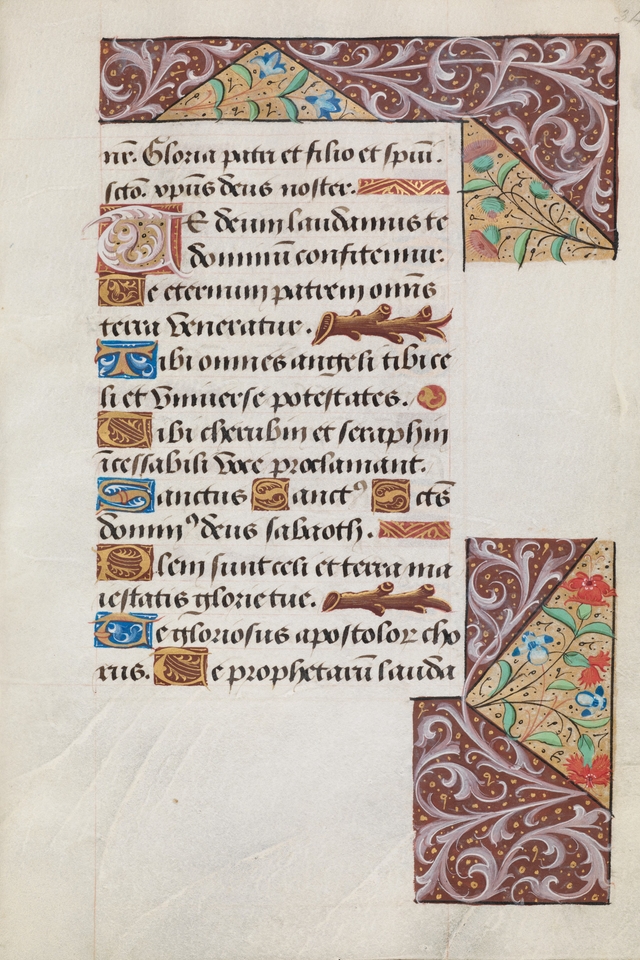 ne. Gloria patri et filio et spūi.
scto. xpūs deus noster.
TE deum laudamus te
dominū confitemur.
Te eternum patrem omīs
terra veneratur.
Tibi omnes angeli tibi ce
li et vniuerse potestates.
Tibi cherubin et seraphin
īcessabili voce proclamant.
Sanctus Sanctꝰ Sctꝰ
dominꝰ deus sabaoth.
Pleni sunt celi et terra ma
iestatis glorie tue.
Te gloriosus apostoloꝝ cho
rus. Te prophetarū lauda